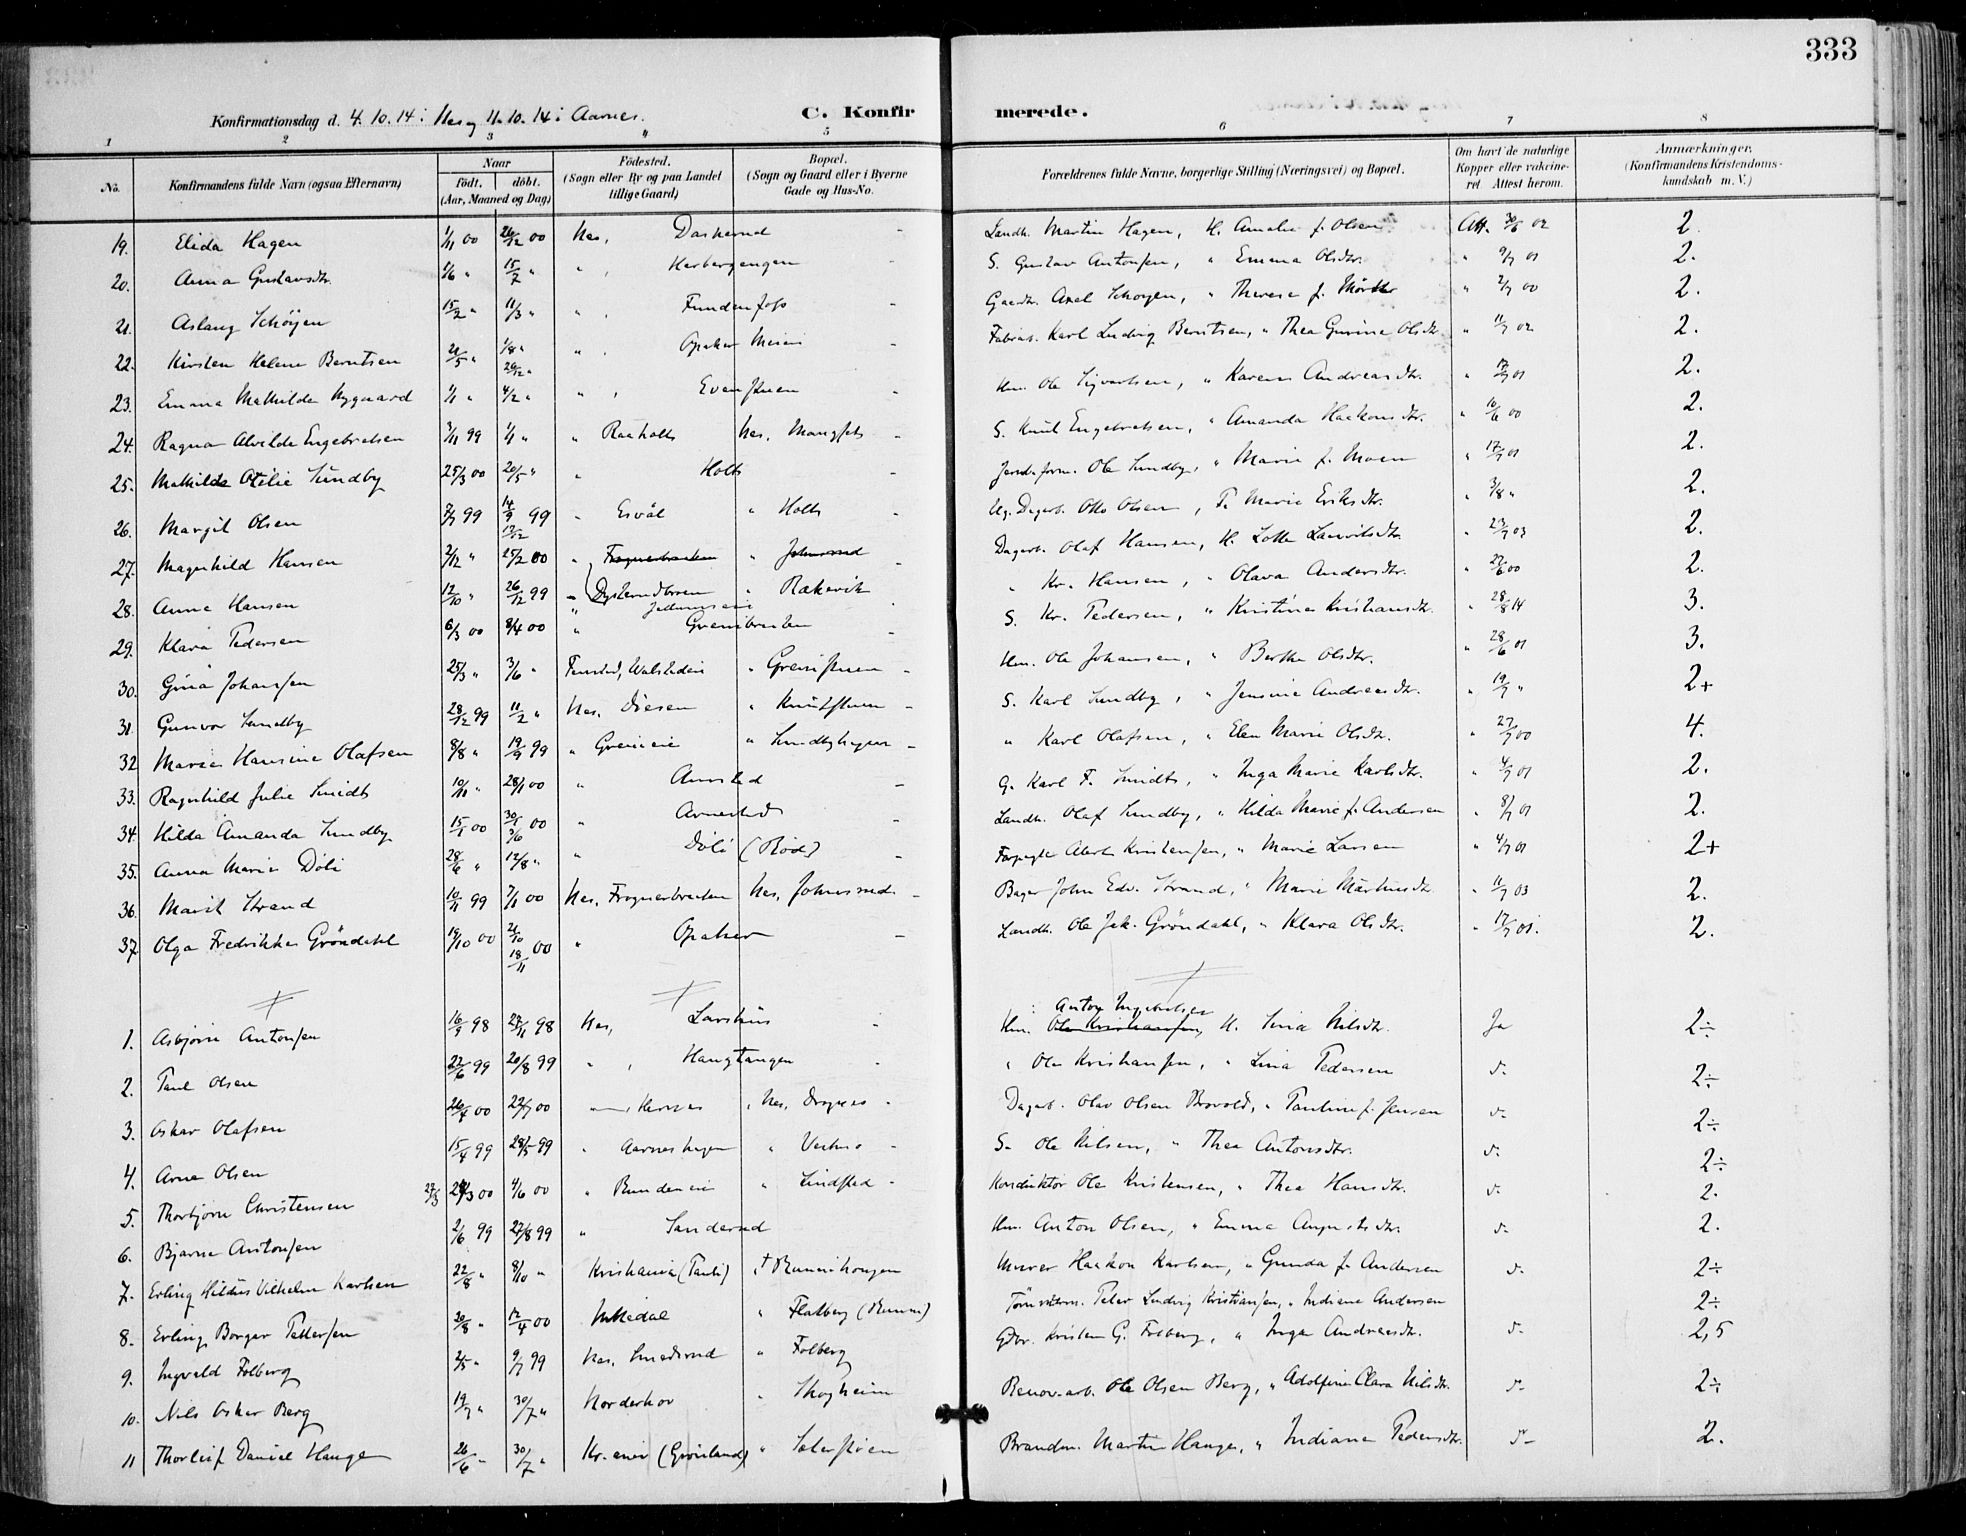 333
Konfirmationsdag d. 4.10.14 i Nes og 11.10.14 i Aarnes. C. Konfirmerede.
1 2 3 5 6 7 8
No. Konfirmandens fulde Navn (ogsaa Efternavn) Naar födt, döbt. (Aar, Maaned og Dag) Födested. (Sogn eller By og paa Landet tillige Gaard) Bopæl. (Sogn og Gaard eller i Byerne Gade og Hus-No. Forældrenes fulde Navne, borgerlige Stilling (Næringsvei) og Bopæl. Om havt de naturlige Kopper eller vakcineret. Attest herom. Anmærkninger. (Konfirmandens Kristendomskundskab m. V.)
19. Elida Hagen 1/11 00 26/12 00 Nes, Daskerud Landh. Martin Hagen, H. Amalie f. Olsen Att. 30/6 02 2.
20. Anna Gustavsdtr. 1/6 " 15/7 " " , Herbergengen S. Gustav Antonsen, " Emma Olsdtr. " 9/7 01 2.
21. Aslaug Schøyen 15/2 " 11/3 " " , Fundenfoss Gaardbr. Axel Schøyen, " Therese f. " 2/7 00 2.
22. Kirsten Helene Berntsen 20/5 " 1/8 " 26/12 " " , Opaker Meieri Fabrikarb. Karl Ludvig Berntsen, " Thea Gurine Olsdtr. " 11/7 02 2.
23. Emma Mathilde Nygaard 1/1 " 4/2 " " , Evenstuen Hm. Ole Sigvartsen, " Karen Andreasdtr. " 17/7 01 2.
24. Ragna Alvilde Engebretsen 3/11 99 1/1 " " Raaholt Nes, S. Knut Engebretsen, " Amanda Haakonsdtr. " 10/6 00 2.
25. Mathilde Otilie Sundby 25/3 00 20/5 " " Holts Ole Sundby, " Marie f. Moen " 17/7 01 2.
26. Margit Olsen 2/7 99 14/9 99 17/12 " Esvål " Holts Ug. Dagarb. Otto Olsen, F. Marie Eriksdtr. " 3/8 " 2.
27. Magnhild Hansen 2/12 " 25/2 00 " Frognerbraaten " Johnsrud Dagarb. Olaf Hansen, H. Lotte Lauritsdtr. " 23/7 03 2.
28. Anna Hansen 12/10 " 26/12 99 " Dysterudbroen " Rakevik " Kr. Hansen, " Olava Andersdtr. " 27/6 00 2.
29. Klara Pedersen 6/3 00 8/4 00 " Grenibraaten S. Kr. Pedersen, " Kristine Kristiansdtr. " 28/8 14 3.
30. Gina Johansen 25/3 " 3/6 " Fensted, " Grenistuen Hm. Ole Johansen, " Berthe Olsdtr. " 28/6 01 3.
31. Gunvor Sundby 28/12 99 11/2 " Nes. Diesen " Knutstuen S. Karl Sundby, " Jensine Andreasdtr. " 19/7 " 2+
32. Marie Hansine Olafsen 8/8 " 19/9 99 " Grenieie " Sundbyhagen " Karl Olafsen, " Elen Marie Olsdtr. " 27/7 00 4.
33. Ragnhild Julie Smidt 10/11 " 28/1 00 " Aamsted G. Karl F. Smidt, " Inga Marie Karlsdtr. " 4/7 01 2.
34. Hilda Amanda Sundby 15/1 00 30/1 00 3/6 " Aarnestad Landh. Olaf Sundby, " Hilda Marie f. Andersen " 8/7 01 2.
35. Anna Marie Döli 28/6 " 12/8 " " Döli (Röd) Forpagter Albert Kristensen, " Marie Larsen " 4/7 01 2+
36. Marit Strand 10/11 99 7/1 00 Nes, Frognerbraaten Nes, Johnsrud Bager John Edv. Strand, " Marie Martinsdtr. " 11/7 03 2.
37. Olga Fredrikke Gröndahl 19/10 00 21/10 18/11 00 " Opaker Landh. Ole Jak. Gröndahl, " Klara Olsdtr. " 17/7 01. 2.
1. Asbjörn Antonsen 16/9 98 27/11 98 Nes, Larshus Hm. Ole Kristiansen, Anton Ingebretsen H. Lina Nilsdtr. Ja 2÷
2. Paul Olsen 22/6 99 20/8 99 " , Haugtangen " Ole Kristiansen, " Lina Pedersen d. 2÷
3. Oskar Olafsen 26/4 00 22/7 00 Nes, Dragnes Dagarb. Olav Olsen Brovold, " Pauline f. Jensen d. 2÷
4. Arne Olsen 15/4 99 28/5 99 " Aarneshagen " S. Ole Nilsen, " Thea Antonsdtr. d. 2÷
5. Thorbjørn Christensen 23/3 00 4/6 00 " Bundeneie " Lindstad Konduktör Ole Kristensen, " Thea Hansdtr. d. 2.
6. Bjarne Antonsen 2/6 99 27/8 99 " Sanderud Hm. Anton Olsen, " Emma Augustsdtr. d. 2.
7. Erling Hildus Vilhelm Karlsen 22/8 " 8/10 " Kristiania (Pauli) " Runnihaugen Murer Haakon Karlsen, " Gunda f. Andersen d. 2÷
8. Erling Borgar Pettersen 20/8 " 12/4 00 Mikedal " Flatberg (Runni) Peter Ludvig Kristiansen, " Indiane Andersen 2÷
9. Ingvald Folberg 2/5 " 9/7 99 Nes, Smedsrud " Folberg Gbr. Kristen G. Folberg, " Inga Andreasdtr. d. 2,5
10. Nils Oskar Berg 19/7 " 30/7 " Norderhov " Skogheim Renov.arb. Ole Olsen Berg, " Adolfine Clara Nilsdtr. d. 2÷
11 Thorleif Daniel Hauge 26/6 " 30/7 " Kr.ania (Grönland) " Brandm. Martin Hauge, " Indiana Pedersdtr. d. 2.